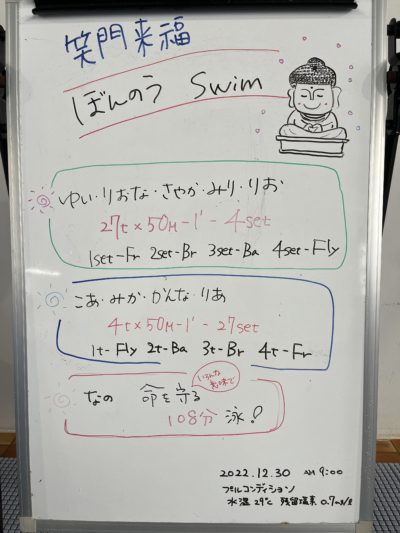 笑門来福
ぼんのう Swim
ゆい・りおな・さやか・みり・りお
27t×50M-1'-4set
1set-Fr 2set-Br 3set-Ba 4set-Fly
こあ・みか・かんな・りあ
4t×50M-1'-27set
1t-Fly 2t-Ba 3t-Br 4t-Fr
いろんな意味で
なの 命を守る
108分 泳!
2022.12.30 AM 9:00
プールコンディション
水温 29℃ 残留塩素 0.7mg/l